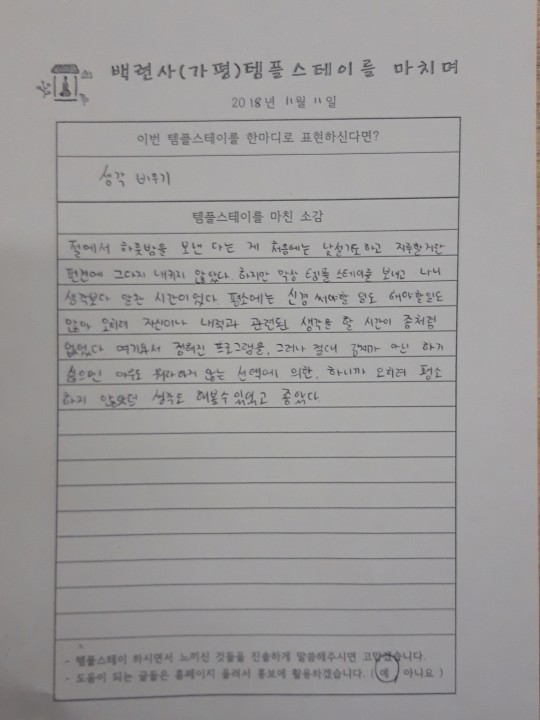 백련사(가평)템플스테이를 마치며
2018년 11월 11일
이번 템플스테이를 한마디로 표현하신다면?
생각 비우기
템플스테이를 마친 소감
절에서 하룻밤을 보낸 다는 게 처음에는 낯설기도하고 지루할거란
편견에 그다지 내키지 않았다. 하지만 막상 템플 스테이를 보내고 나니
생각보다 알찬 시간이었다. 평소에는 신경 써야할 일도 해야할일도
많아 오히려 자신이나 내적과 관련된 생각을 할 시간이 좀처럼
없었다 여기와서 정해진 프로그램을, 그러나 절대 강제가 아닌 하기
싫으면 아무도 뭐라하지 않는 선택에 의한, 하니까 오히려 평소
하지 않았던 성주도 해볼수있었고 좋았다
- 템플스테이 하시면서 느끼신 것들을 진솔하게 말씀해주시면 고맙겠습니다.
- 도움이 되는 글들은 홈페이지 올려서 홍보에 활용하겠습니다. ( 예, 아니요 )